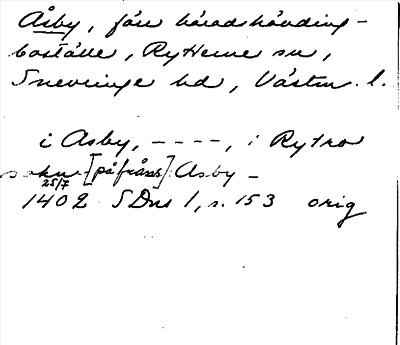 Åsby, förr häradshövding-
boställe, Rytterne sn,
Snevringe hd, Västm. l.
i Asby, ----, i Rytro
sokne [påfräss]: Asby -
25/7
1402 SDns 1, s. 153 orig